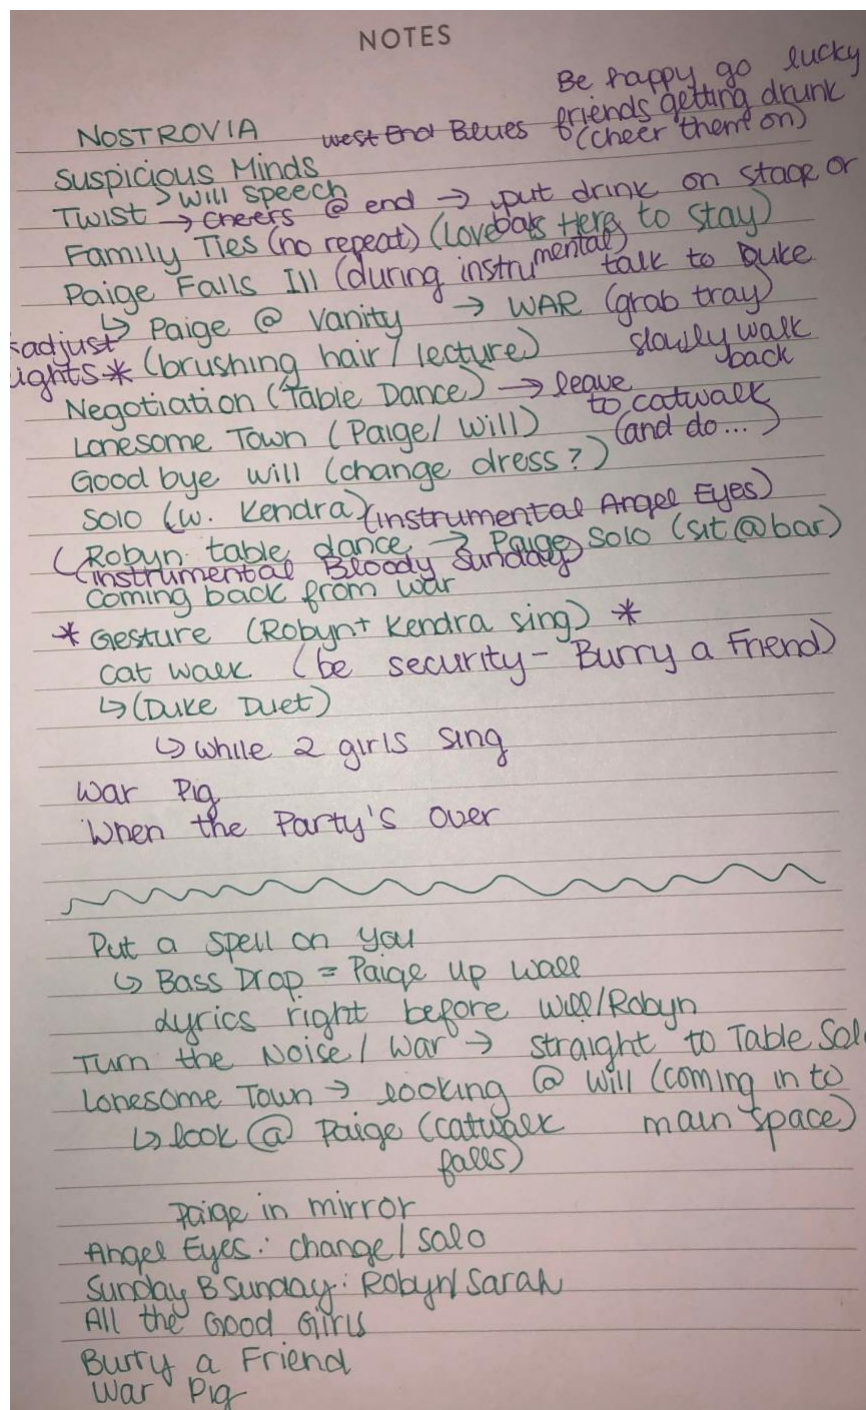 NOTES
Be happy go lucky
friends getting drunk
NOSTROVIA west End Blues (cheer them on)
Suspicious Minds
> Will speech
Twist → cheers @ end → put drink on stage or
bar
Family Ties (no repeat) (Love is Here to stay)
Paige Falls Ill (during instrumental) talk to Duke
↳ Paige @ Vanity → WAR (grab tray)
*adjust
lights* (brushing hair / lecture) slowly walk
back
Negotiation (Table Dance) → leave
to catwalk
Lonesome Town (Paige/ Will) (and do...)
Good bye will (change dress?)
Solo (w. Kendra) (instrumental Angel Eyes)
(Robyn table dance → Paige solo (sit @ bar)
(instrumental Bloody Sunday)
coming back from war
* Gesture (Robyn + Kendra sing) *
cat walk (be security - Burry a Friend)
↳ (Duke Duet)
↳ while 2 girls sing
War Pig
When the Party's over
Put a spell on you
↳ Bass Drop = Paige up wall
Lyrics right before Will/Robyn
Turn the Noise / War → straight to Table Solo
Lonesome Town → looking @ Will (coming in to
↳ look @ Paige (catwalk main space)
falls)
Paige in mirror
Angel Eyes: change / solo
Sunday B Sunday: Robyn/Sarah
All the Good Girls
Burry a Friend
War Pig